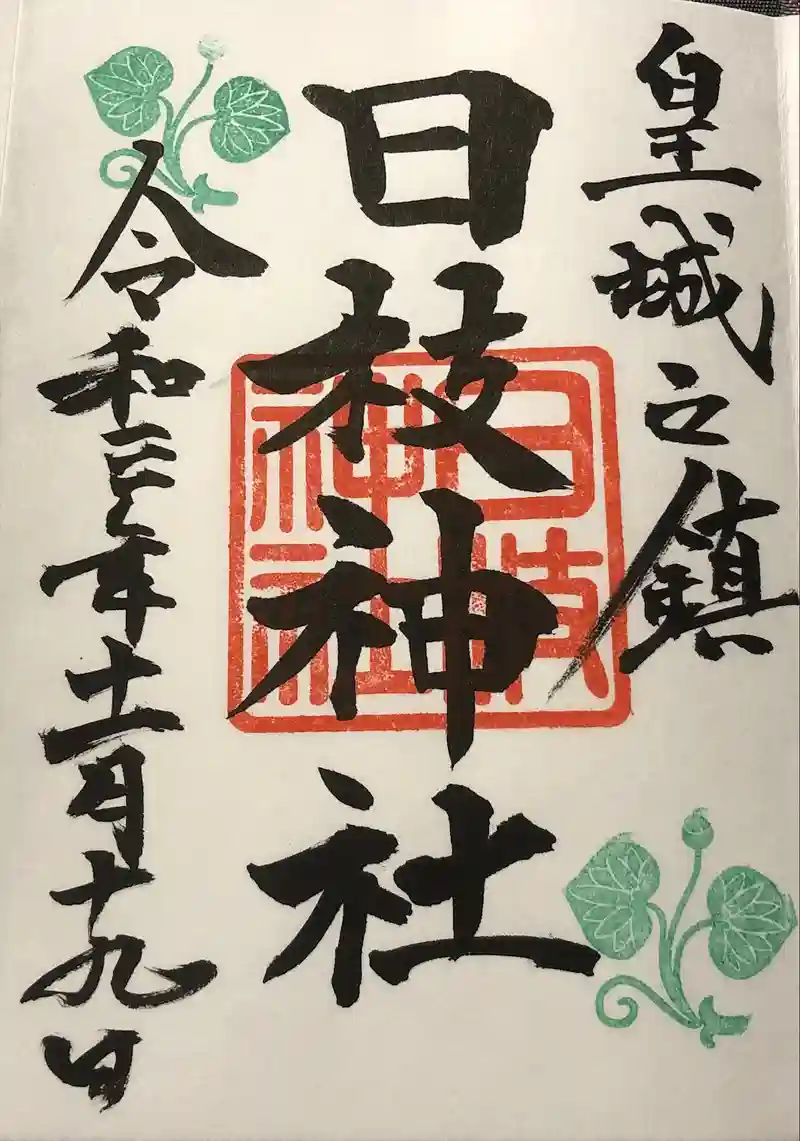 皇城之鎮
日枝神社
令和元年十一月十九日
日枝
神社